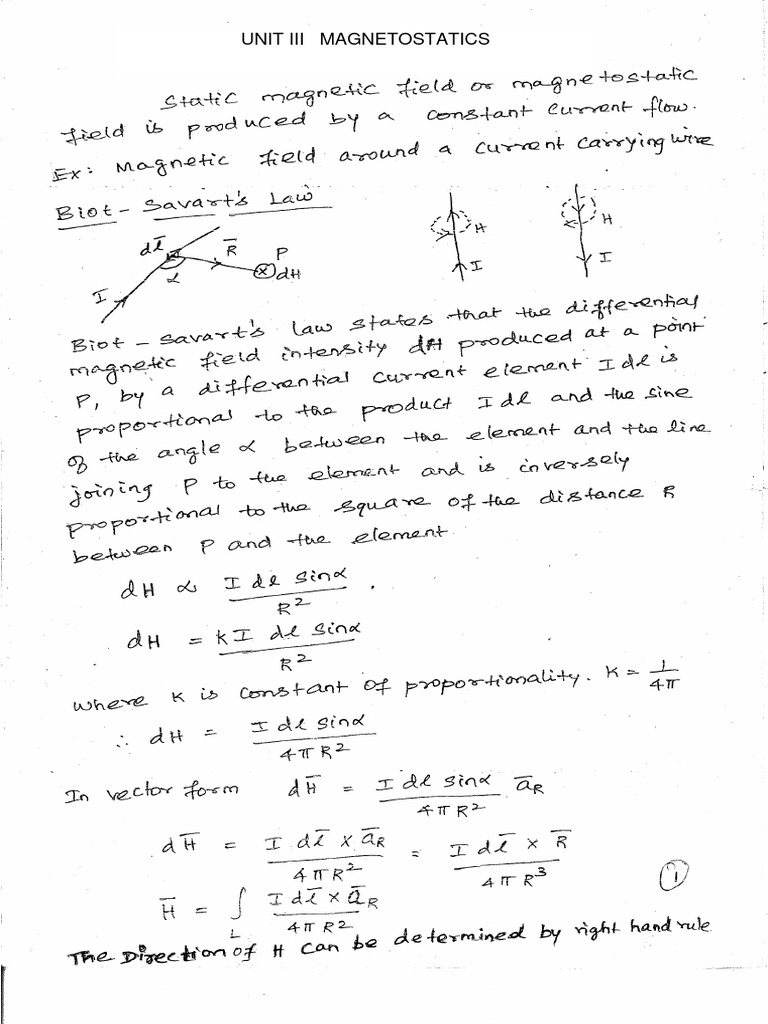 UNIT III MAGNETOSTATICS
Static magnetic field or magnetostatic
field is produced by a constant current flow.
Ex: Magnetic field around a current carrying wire
Biot - Savart's Law
dl̄ R̄ P
α dH
I
H I
H I
Biot - Savart's law states that the differential
magnetic field intensity dH produced at a point
P, by a differential current element I dl is
proportional to the product I dl and the sine
of the angle α between the element and the line
joining P to the element and is inversely
proportional to the square of the distance R
between P and the element.
dH ∝ I dl sinα / R²
dH = k I dl sinα / R²
where k is constant of proportionality. k = 1/4π
∴ dH = I dl sinα / 4πR²
In vector form dH̄ = I dl sinα / 4πR² āR
dH̄ = I dl̄ × āR / 4πR² = I dl̄ × R̄ / 4πR³
①
H̄ = ∫L I dl̄ × āR / 4πR²
The Direction of H can be determined by right hand rule